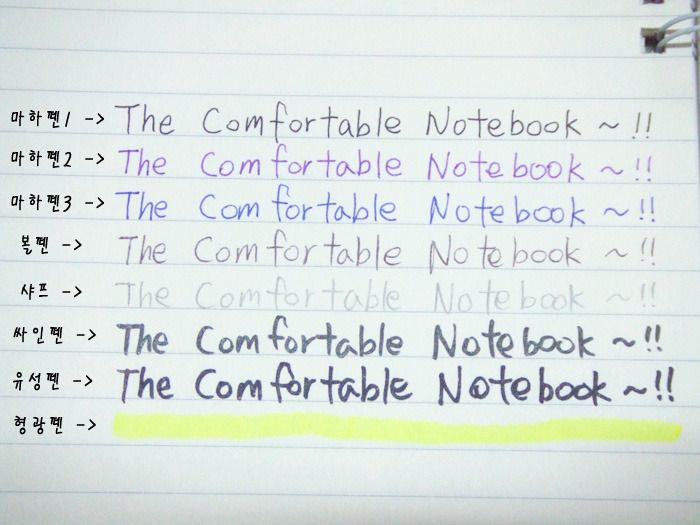 마하펜1 -> The Comfortable Notebook ~ !!
마하펜2 -> The Comfortable Notebook ~ !!
마하펜3 -> The Comfortable Notebook ~ !!
볼펜 -> The Comfortable Notebook ~ !!
샤프 -> The Comfortable Notebook ~ !!
싸인펜 -> The Comfortable Notebook ~ !!
유성펜 -> The Comfortable Notebook ~ !!
형광펜 ->